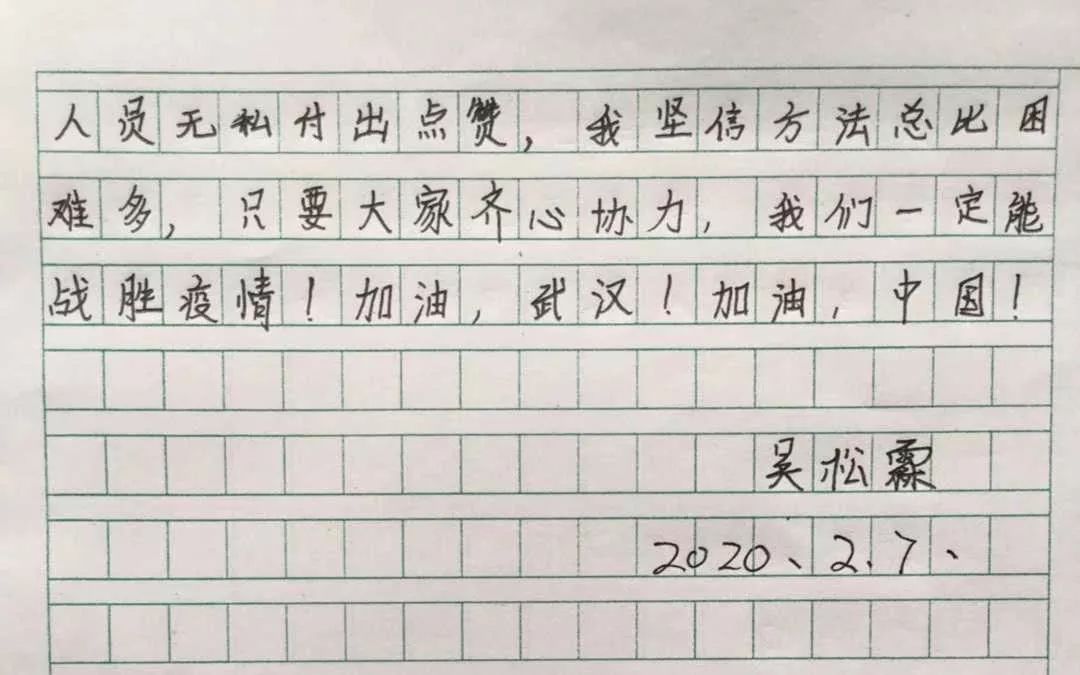 人员无私付出点赞,我坚信方法总比困
难多,只要大家齐心协力,我们一定能
战胜疫情!加油,武汉!加油,中国!
吴松霖
2020、2.7、